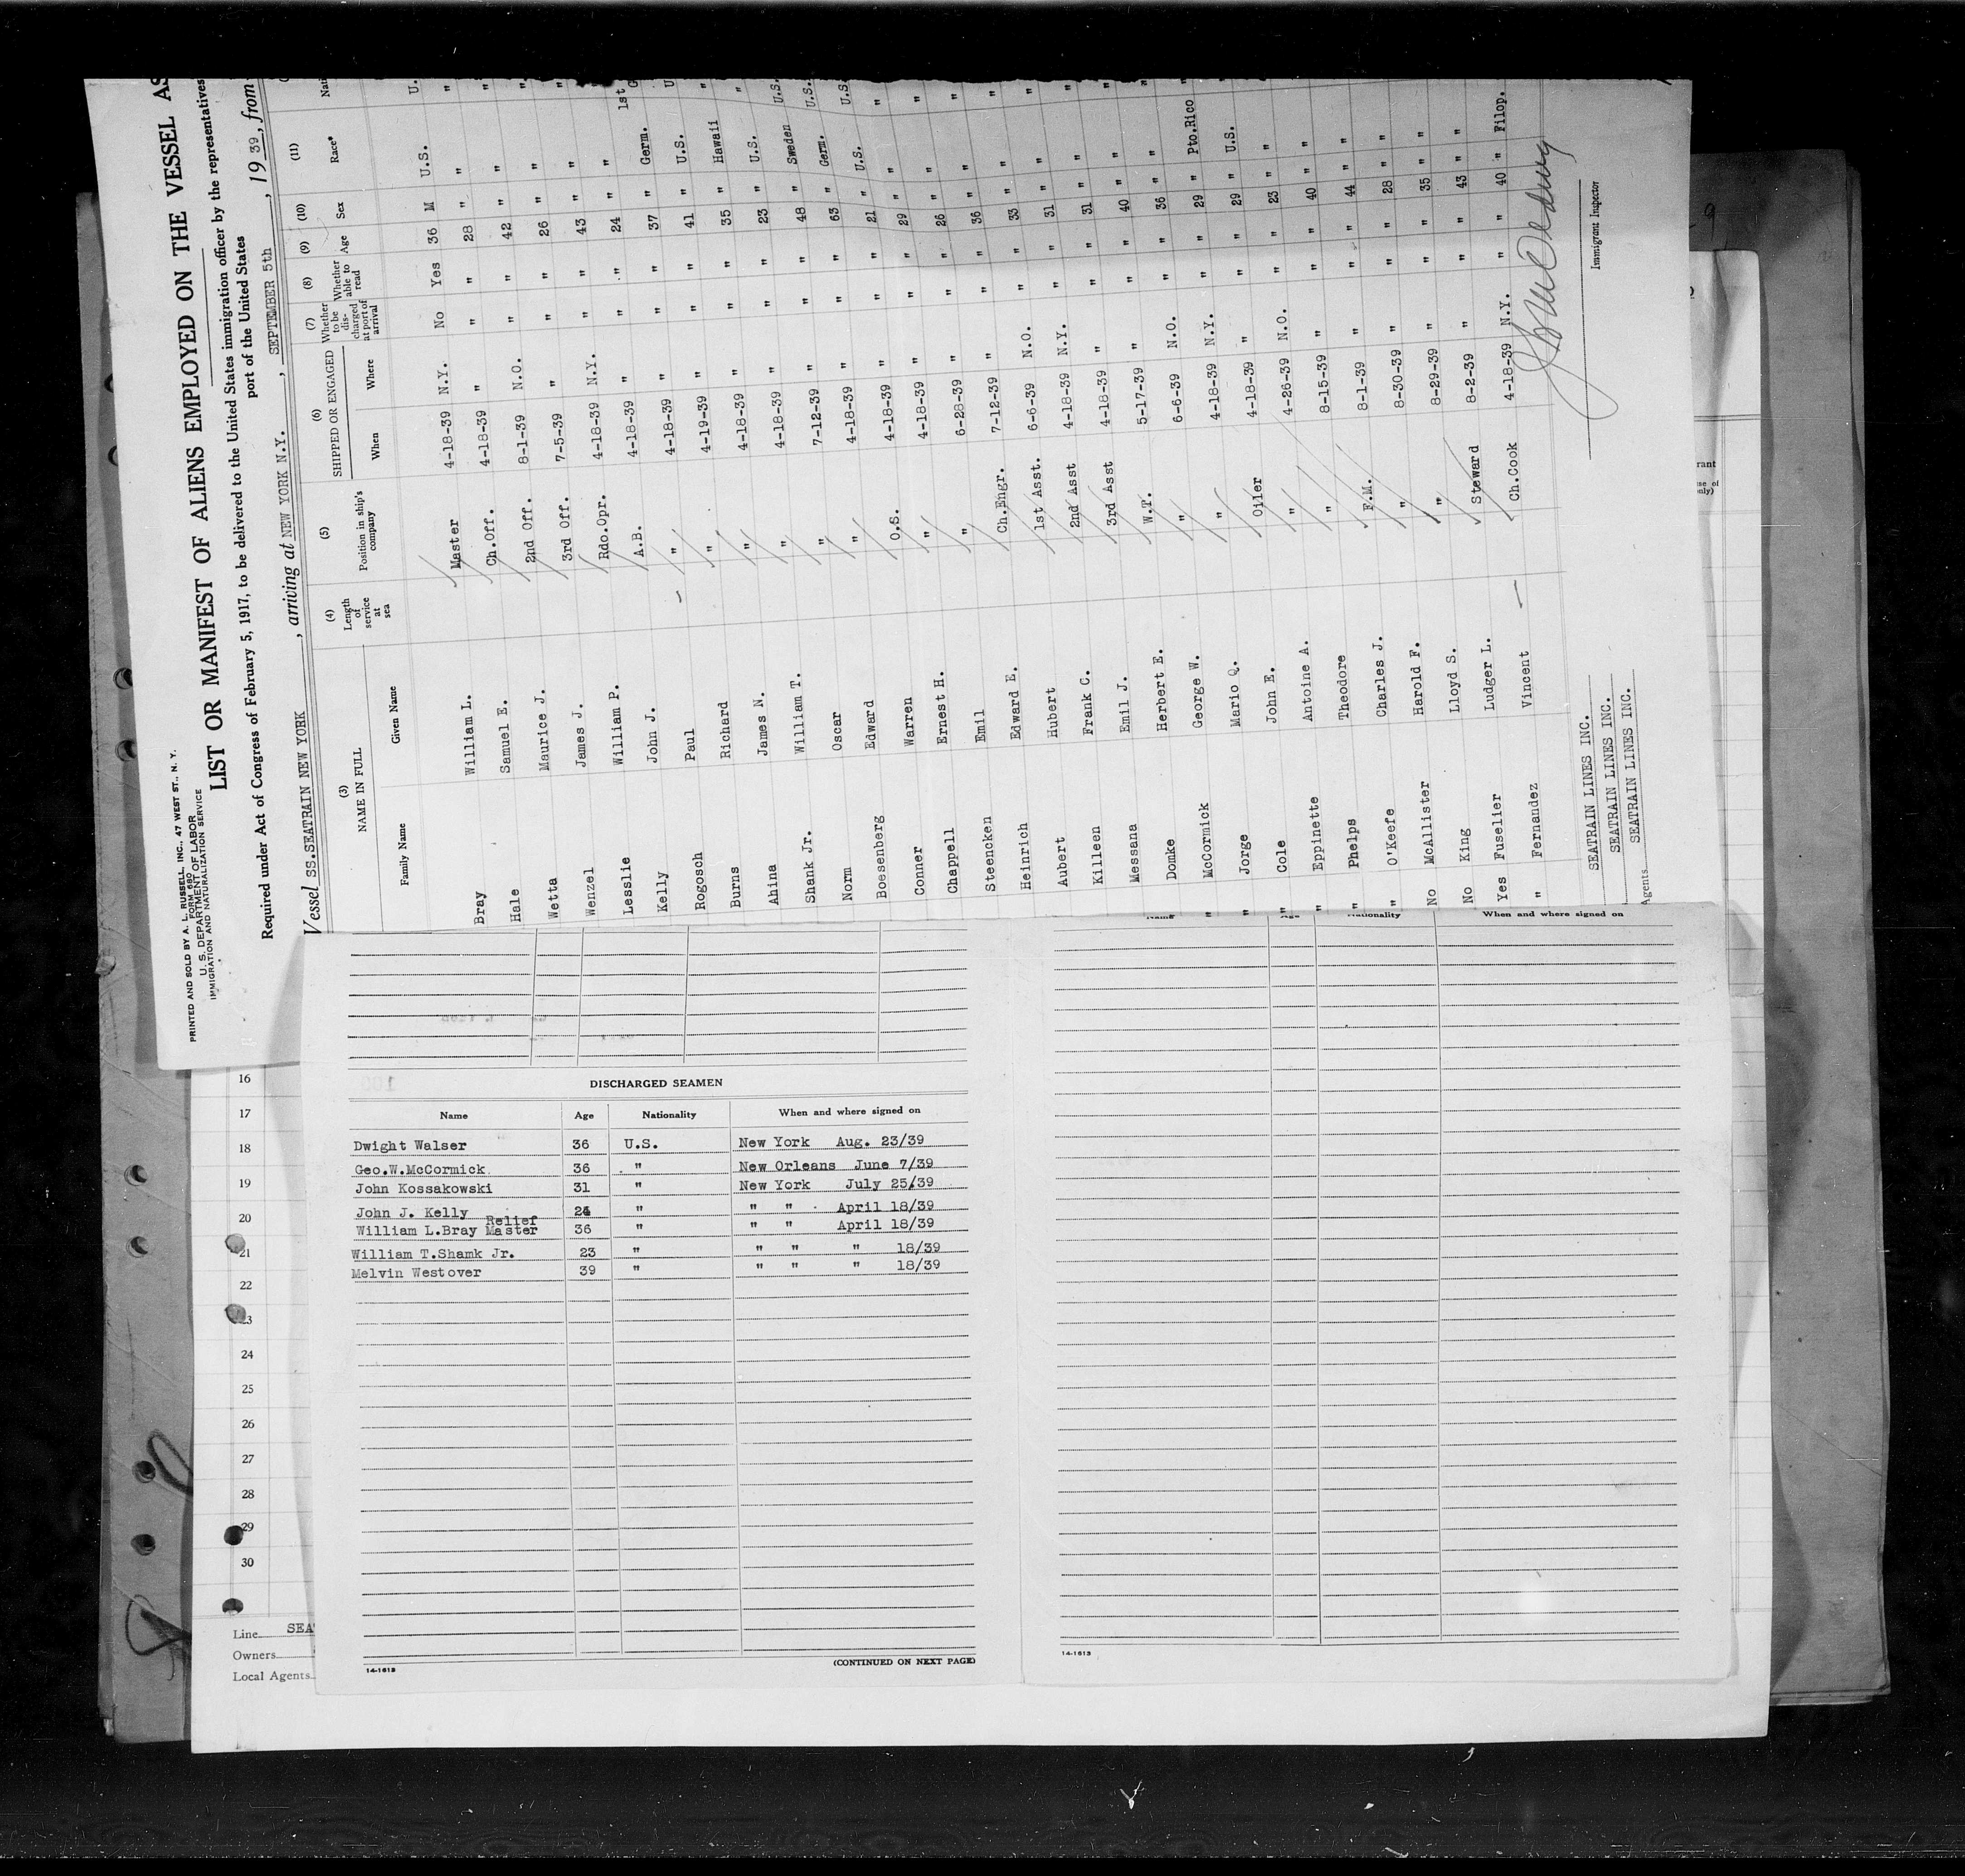 PRINTED AND SOLD BY A. L. RUSSELL, INC., 47 WEST ST., N. Y.
FORM 680
U. S. DEPARTMENT OF LABOR
IMMIGRATION AND NATURALIZATION SERVICE
LIST OR MANIFEST OF ALIENS EMPLOYED ON THE VESSEL AS
Required under Act of Congress of February 5, 1917, to be delivered to the United States immigration officer by the representatives
port of the United States
Vessel SS.SEATRAIN NEW YORK , arriving at NEW YORK N.Y. , SEPTEMBER 5th , 19 39, from
(3) (4) (5) (6) (7) (8) (9) (10) (11)
NAME IN FULL Length of service at sea Position in ship's company SHIPPED OR ENGAGED Whether to be discharged at port of arrival Whether able to read Age Sex Race*
Family Name Given Name When Where
Bray William L. Master 4-18-39 N.Y. No Yes 36 M U.S. U.
Hale Samuel E. Ch.Off. 4-18-39 " " " 28 " " "
Wetta Maurice J. 2nd Off. 8-1-39 N.O. " " 42 " " "
Wenzel James J. 3rd Off. 7-5-39 " " " 26 " " "
Lesslie William P. Rdo.Opr. 4-18-39 N.Y. " " 43 " " "
Kelly John J. A.B. 4-18-39 " " " 24 " " "
Rogosch Paul " 4-18-39 " " " 37 " Germ. 1st
Burns Richard " 4-19-39 " " " 41 " U.S. U
Ahina James N. " 4-18-39 " " " 35 " Hawaii "
Shank Jr. William T. " 4-18-39 " " " 23 " U.S. "
Norm Oscar " 7-12-39 " " " 48 " Sweden U.S.
Boesenberg Edward " 4-18-39 " " " 63 " Germ. U.S.
Conner Warren O.S. 4-18-39 " " " 21 " U.S. U.S.
Chappell Ernest H. " 4-18-39 " " " 29 " " "
Steencken Emil " 6-28-39 " " " 26 " " "
Heinrich Edward E. Ch.Engr. 7-12-39 " " " 36 " " "
Aubert Hubert 1st Asst. 6-6-39 N.O. " " 33 " " "
Killeen Frank C. 2nd Asst 4-18-39 N.Y. " " 31 " " "
Messana Emil J. 3rd Asst 4-18-39 " " " 31 " " "
Domke Herbert E. W.T. 5-17-39 " " " 40 " " "
" McCormick George W. " 6-6-39 N.O. " " 36 " " "
" Jorge Mario Q. " 4-18-39 N.Y. " " 29 " Pto.Rico "
" Cole John E. Oiler 4-18-39 " " " 29 " U.S. "
" Eppinette Antoine A. " 4-26-39 N.O. " " 23 " " "
" Phelps Theodore " 8-15-39 " " " 40 " " "
" O'Keefe Charles J. F.M. 8-1-39 " " " 44 " " "
No McAllister Harold F. " 8-30-39 " " " 28 " " "
No King Lloyd S. " 8-29-39 " " " 35 " " "
Yes Fuselier Ludger L. Steward 8-2-39 " " " 43 " " "
" Fernandez Vincent Ch.Cook 4-18-39 N.Y. " " 40 " Filop. "
SEATRAIN LINES INC.
SEATRAIN LINES INC.
Agents SEATRAIN LINES INC.
Immigrant Inspector
Name Age Nationality When and where signed on
DISCHARGED SEAMEN
Name Age Nationality When and where signed on
Dwight Walser 36 U.S. New York Aug. 23/39
Geo.W.McCormick 36 " New Orleans June 7/39
John Kossakowski 31 " New York July 25/39
John J. Kelly 24 " " " April 18/39
William L.Bray Relief Master 36 " " " April 18/39
William T.Shamk Jr. 23 " " " " 18/39
Melvin Westover 39 " " " " 18/39
14-1613
(CONTINUED ON NEXT PAGE)
14-1613
16
17
18
19
20
21
22
23
24
25
26
27
28
29
30
Line SEA
Owners
Local Agents